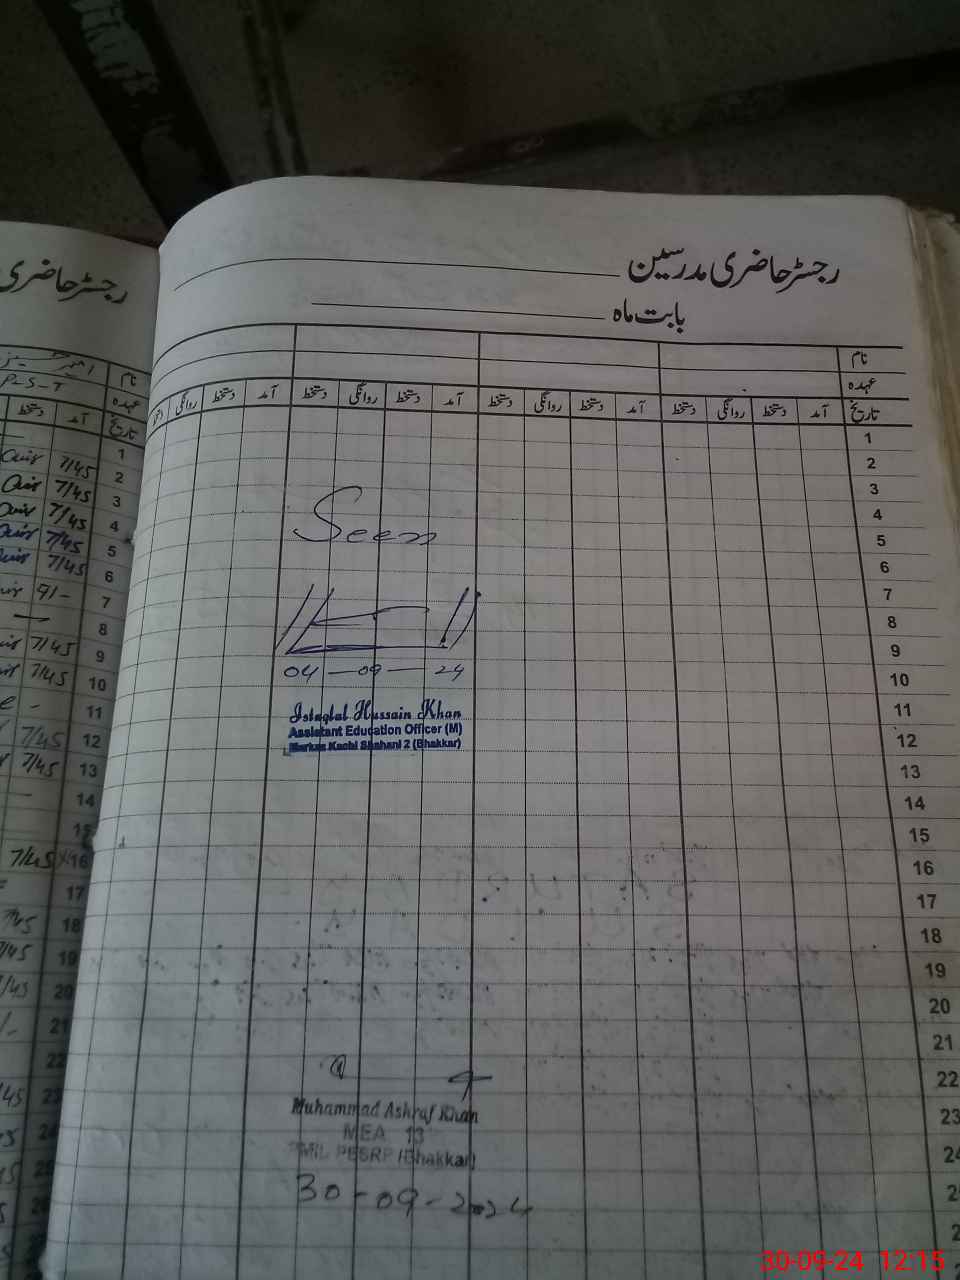 رجسٹر حاضری مدرسین
بابت ماہ
نام
عہدہ
تاریخ آمد دستخط روانگی دستخط آمد دستخط روانگی دستخط آمد دستخط روانگی دستخط آمد دستخط روانگی
1
2
3
4
5
6
7
8
9
10
11
12
13
14
15
16
17
18
19
20
21
22
23
24
Seen
04-09-24
Istaqlal Hussain Khan
Assistant Education Officer (M)
Markaz Kachi Shahani 2 (Bhakkar)
Muhammad Ashraf Khan
MEA 13
PESRP (Bhakkar)
30-09-2024
رجسٹر حاضری
نام
عہدہ P-S-T
تاریخ آمد دستخط
1
2 7/45
3 7/45
4 7/45
5 7/45
6 7/45
7 9/-
8
9 7/45
10 7/45
11
12 7/45
13 7/45
14
15
16 7/45
17
18 7/45
19 7/45
20 7/45
21
22
23 7/45
30-09-24 12:15